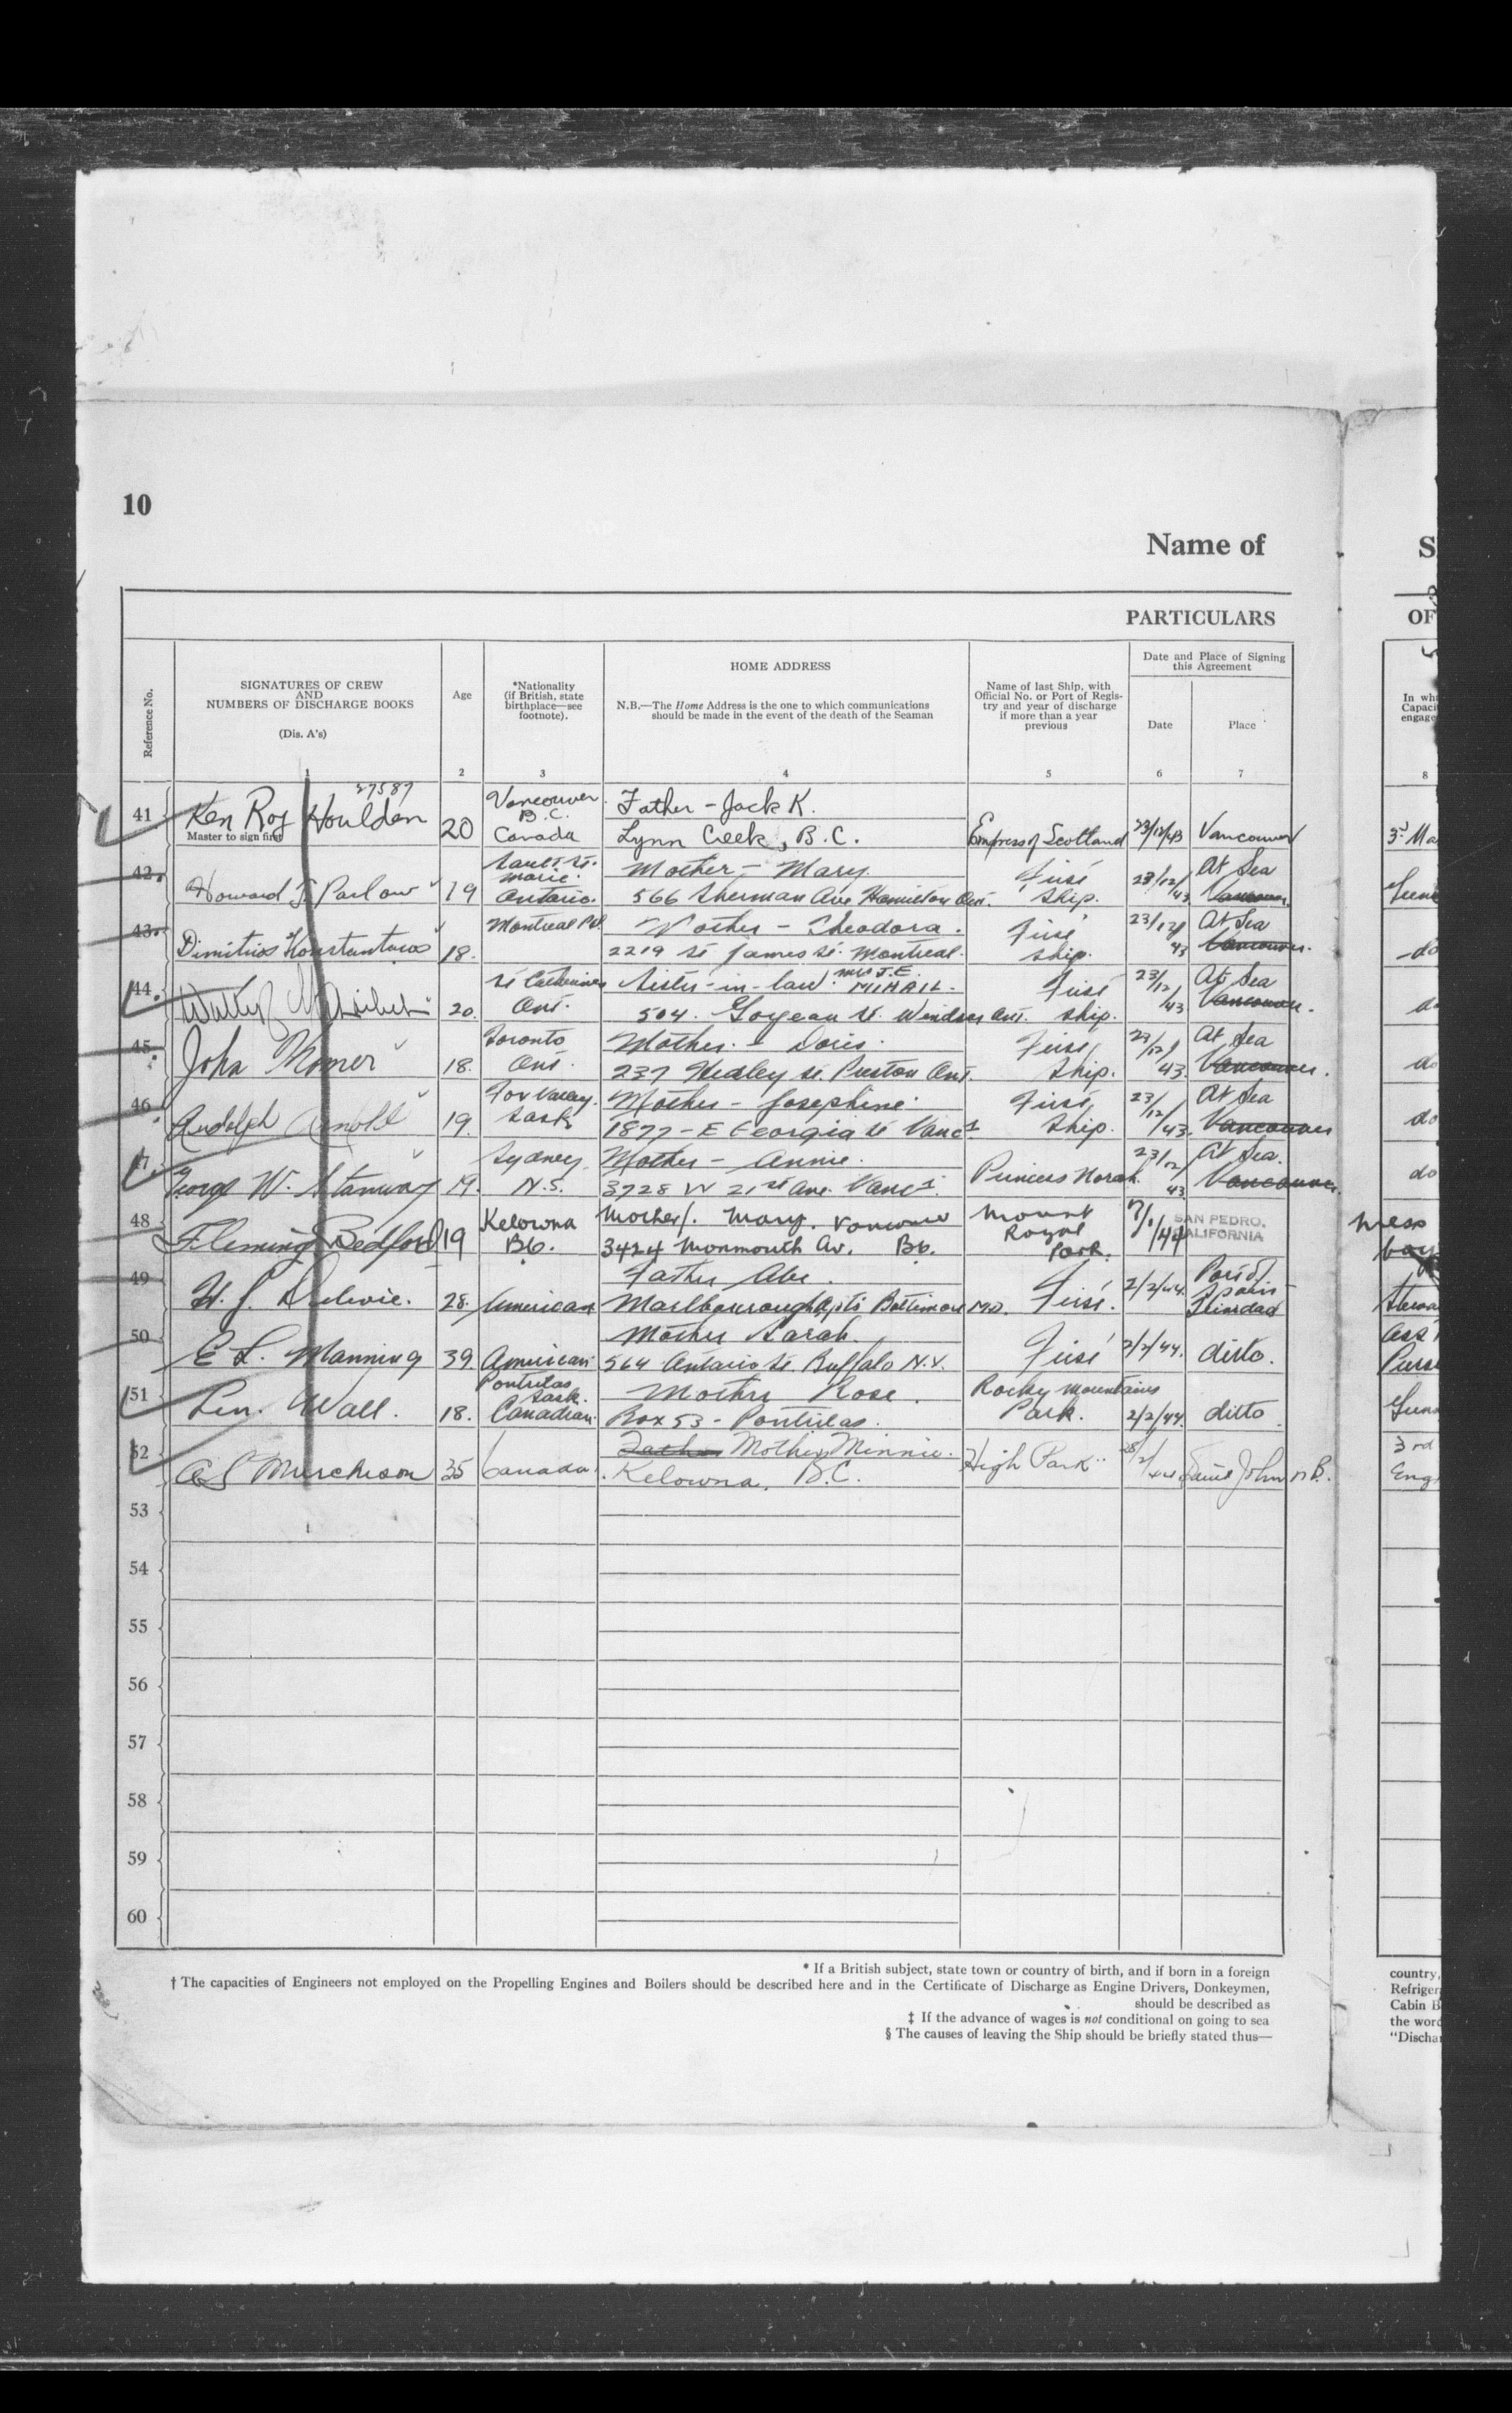 10
Name of
S
PARTICULARS
OF
Reference No.
SIGNATURES OF CREW
AND
NUMBERS OF DISCHARGE BOOKS
(Dis. A's)
1
Age
2
*Nationality
(if British, state
birthplace—see
footnote).
3
HOME ADDRESS
N.B.—The Home Address is the one to which communications
should be made in the event of the death of the Seaman
4
Name of last Ship, with
Official No. or Port of Regis-
try and year of discharge
if more than a year
previous
5
Date and Place of Signing
this Agreement
Date
6
Place
7
In wh
Capaci
engage
8
27587
41 Ken Roy Houlden 20 Vancouver B.C. Canada Father - Jack K. Lynn Creek, B.C. Empress of Scotland 23/12/43 Vancouver 3rd Ma
Master to sign first
42 Howard J. Parlow 19 Sault Ste. Marie. Ontario. Mother - Mary 566 Sherman Ave Hamilton Ont. First Ship. 23/12/43 At Sea Vancouver
43 Dimitrios 18. Montreal PQ. Mother - Theodora. 2219 St James St. Montreal. First Ship. 23/12/43 At Sea Vancouver. do
44 20. St Catherines Ont. Sister-in-law. Mrs J.E. 504. Goyeau St. Windsor Ont. First Ship. 23/12/43 At Sea Vancouver. do
45 John 18. Toronto Ont. Mother. - Doris. 237 Hedley St. Preston Ont. First Ship. 23/12/43. At Sea Vancouver. do
46 Rudolph Arnold 19. Fox Valley. Sask Mother - Josephine 1877 - E Georgia St Vancr First Ship. 23/12/43. At Sea Vancouver do
47 George W. Stanway 19. Sydney N.S. Mother - Annie. 3728 W 21st Ave. Vancr. Princess Norah. 23/12/43 At Sea. Vancouver. do
48 Fleming Bedford 19 Kelowna BC. Mother. Mary. Vancouver 3424 Monmouth Av. BC. Mount Royal Park. /1/44 SAN PEDRO, CALIFORNIA mess boy
49 28. American Father Abe. Marlborough Apts Baltimore MD. First. 2/2/44. Port of Spain Trinidad
50 E L. Manning 39 American Mother Sarah. 564 Ontario St. Buffalo N.Y. First 2/2/44. ditto. Ass
51 Len. Wall. 18. Ponteilas Sask. Canadian. Mother Rose. Box 53 - Ponteilas. Rocky Mountains Park. 2/2/44. ditto.
52 Murchison 35 Canada. Father Mother Minnie. Kelowna. B.C. High Park Saint John N.B. 3rd Eng
53
54
55
56
57
58
59
60
* If a British subject, state town or country of birth, and if born in a foreign
† The capacities of Engineers not employed on the Propelling Engines and Boilers should be described here and in the Certificate of Discharge as Engine Drivers, Donkeymen,
should be described as
‡ If the advance of wages is not conditional on going to sea
§ The causes of leaving the Ship should be briefly stated thus—
country,
Refriger
Cabin B
the word
"Dischar